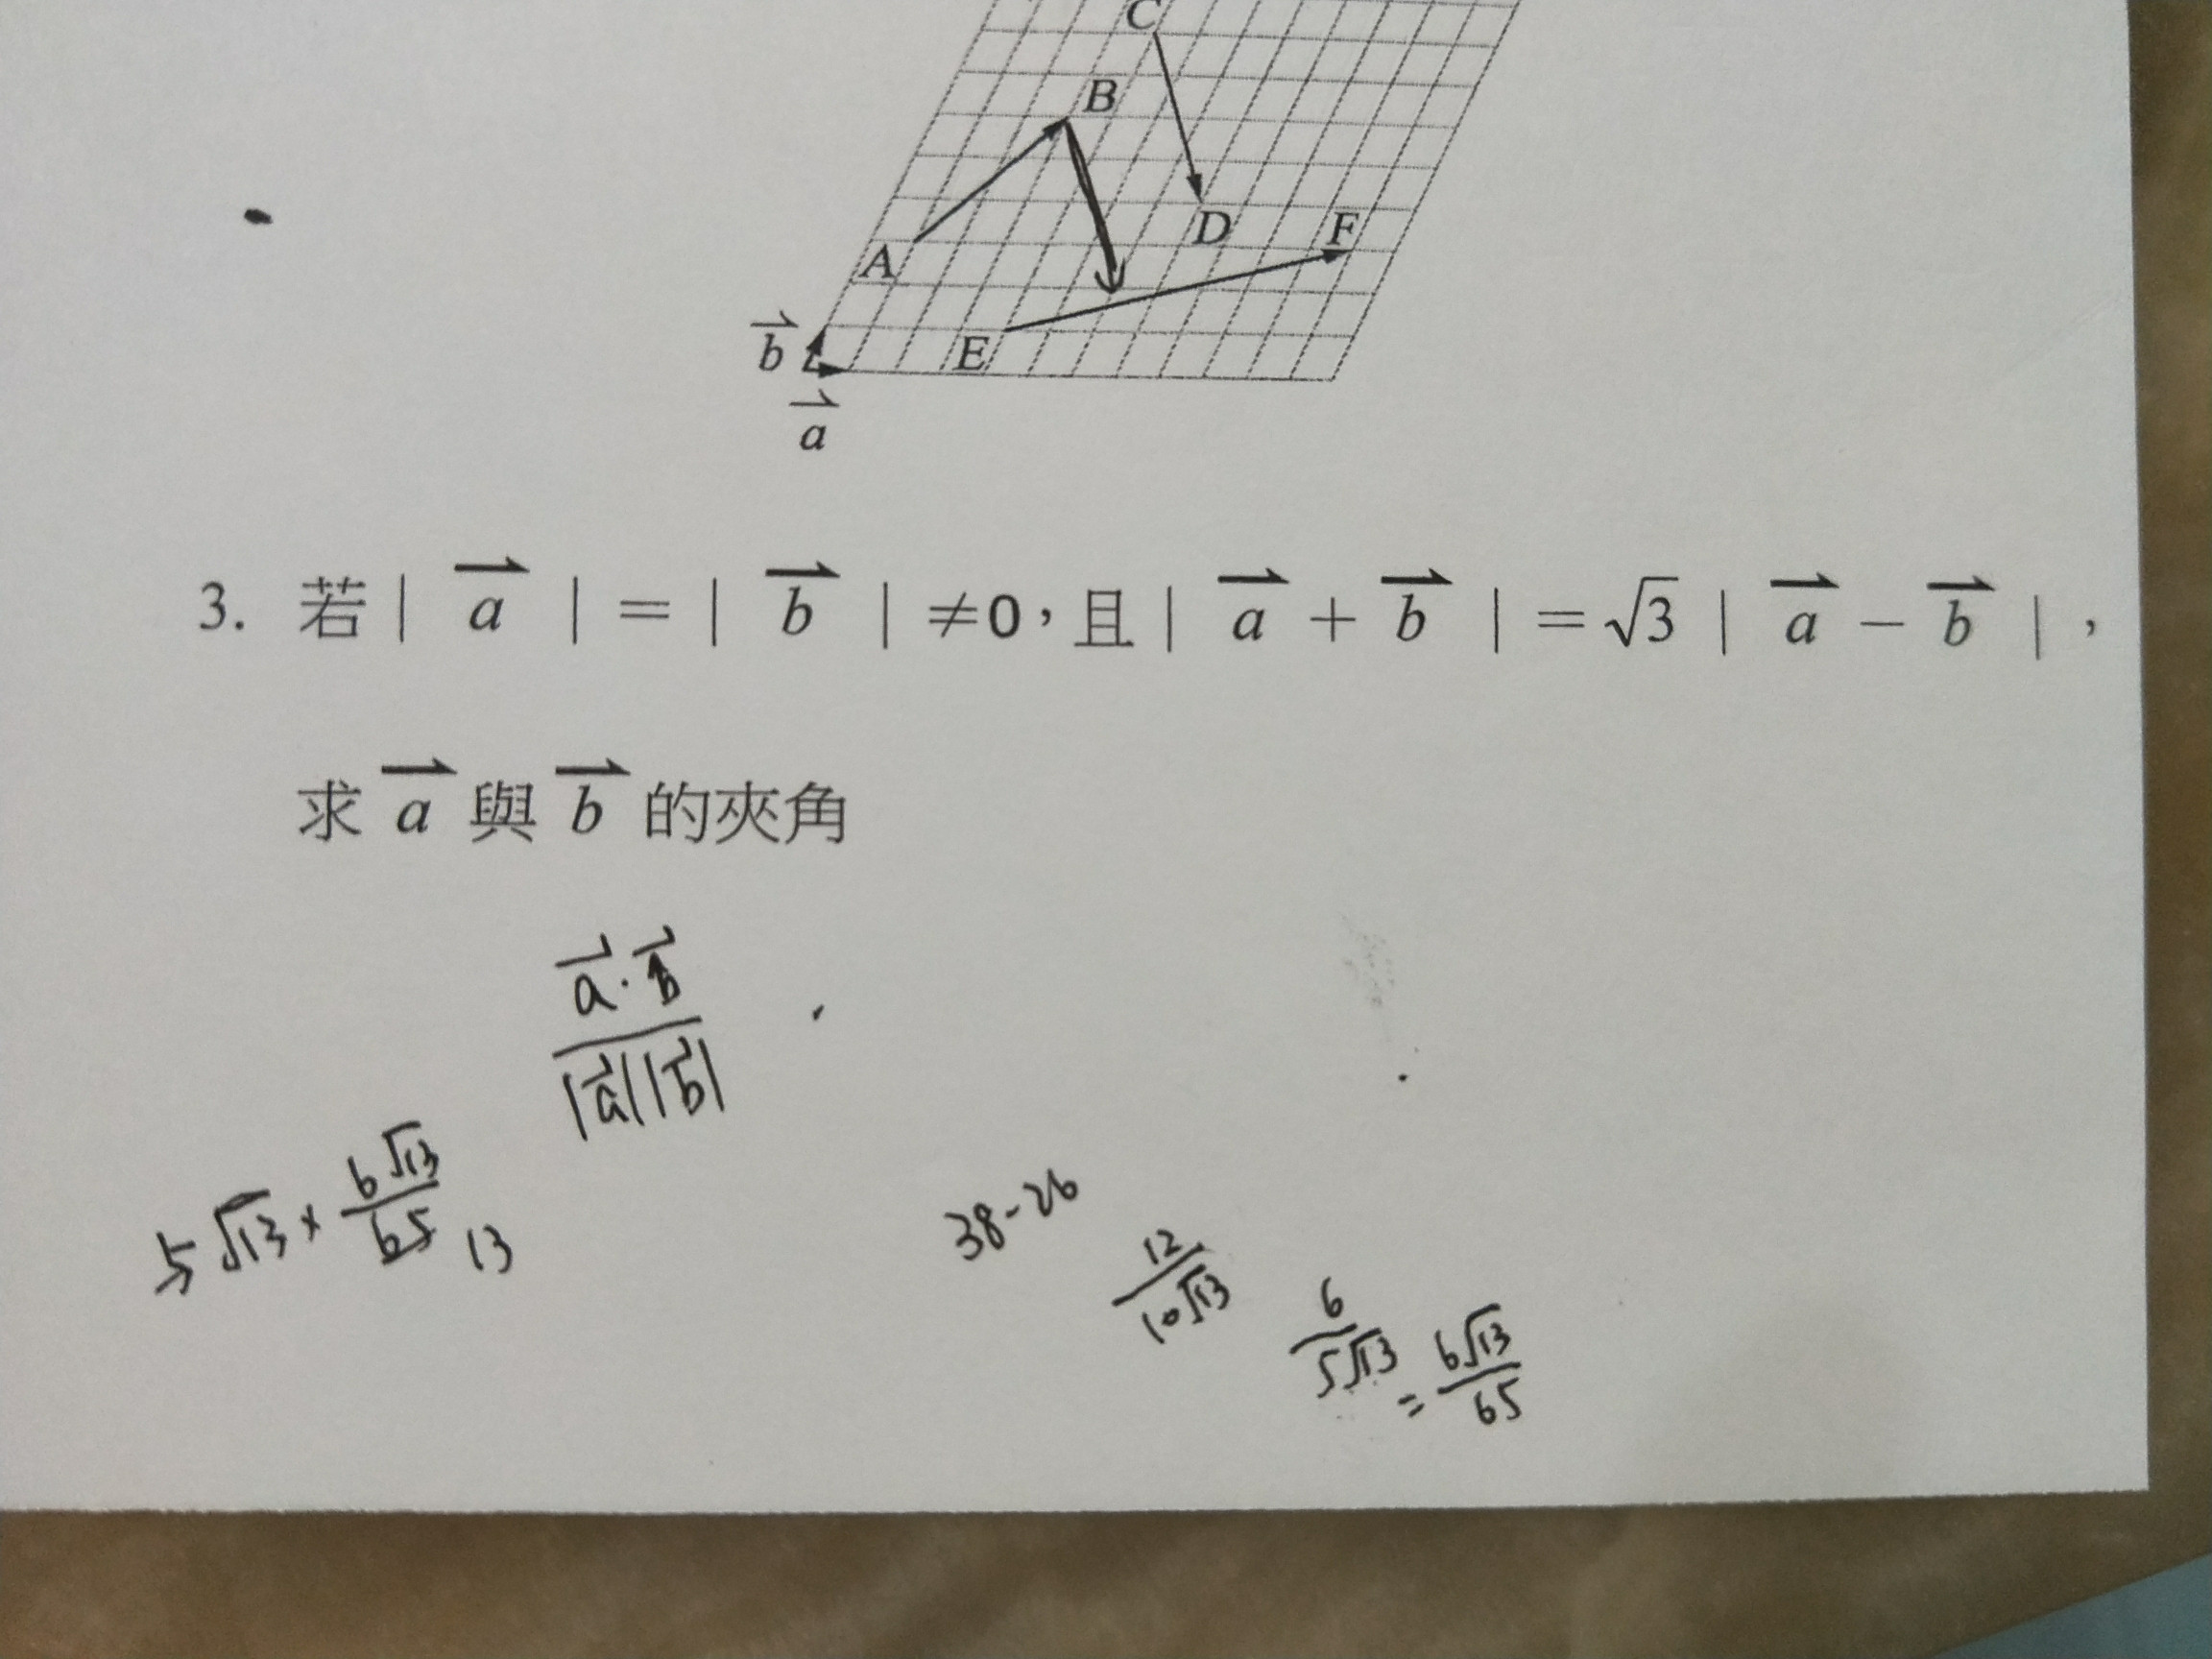 C
B
D
F
A
E
b
a
3. 若| a | = | b | ≠0,且| a + b | = √3 | a − b |,
求 a 與 b 的夾角
a · b
|a||b|
5√13 × 6√13
65 13
38-26
12
10√13
6
5√13
= 6√13
65